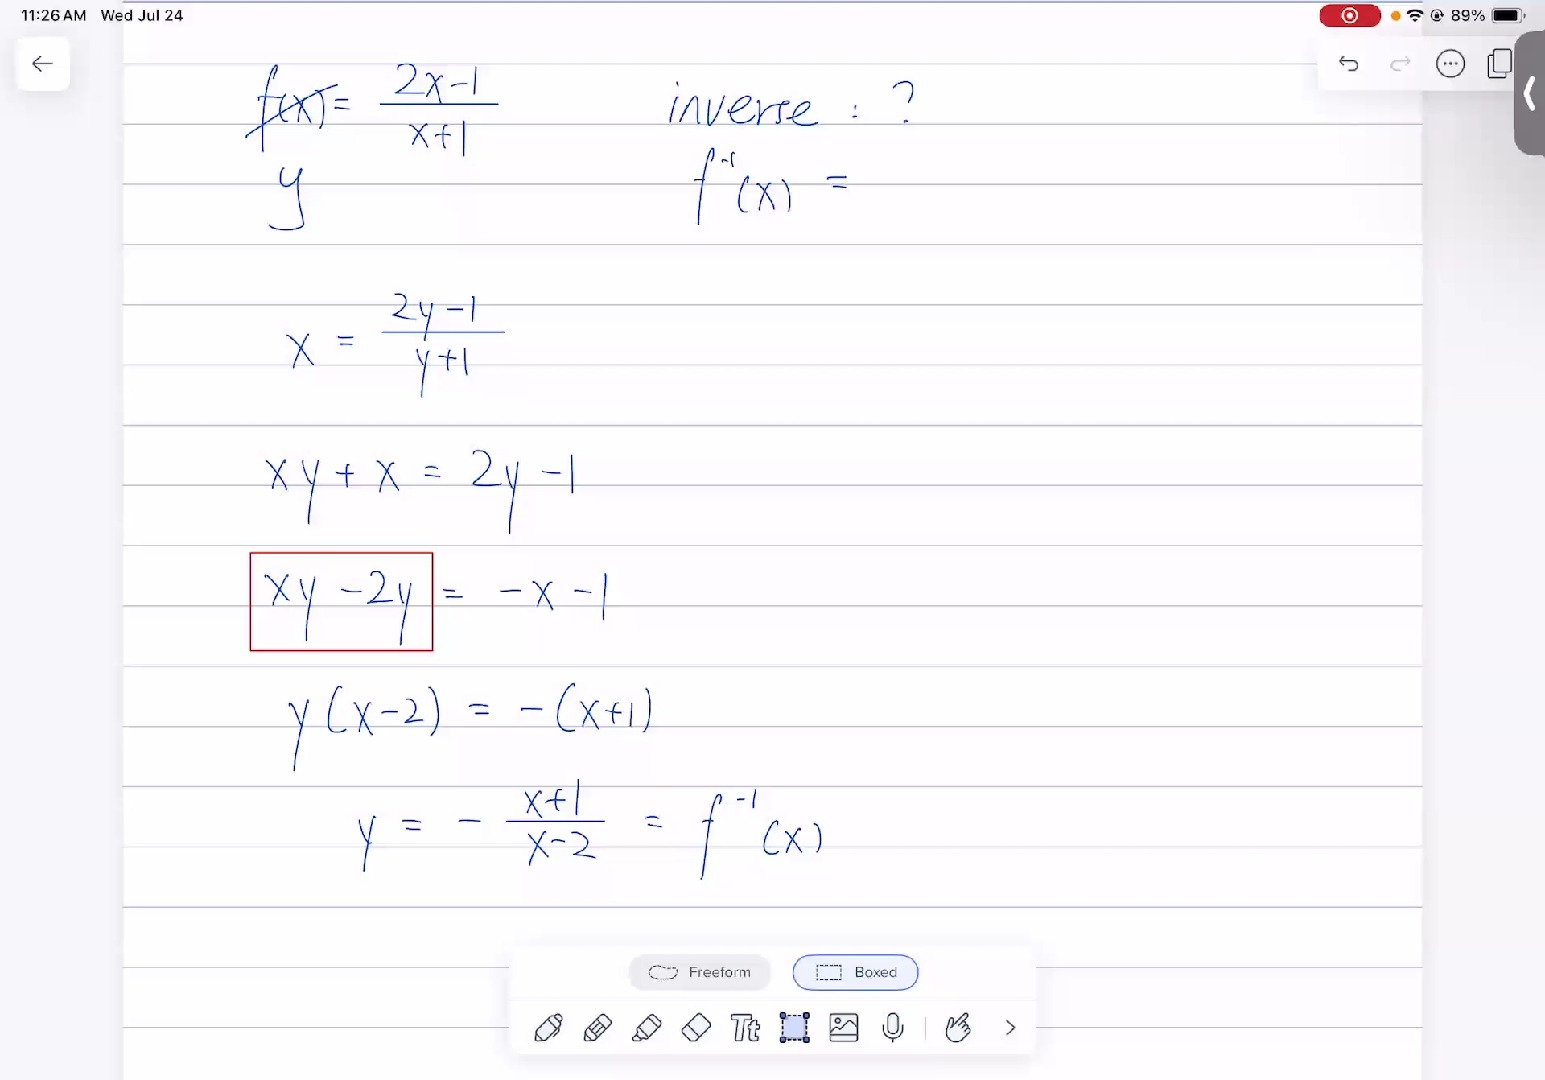 11:26 AM Wed Jul 24
89%
f(x) = (2x-1)/(x+1) inverse : ?
y f⁻¹(x) =
x = (2y-1)/(y+1)
xy + x = 2y -1
xy -2y = -x -1
y(x-2) = -(x+1)
y = - (x+1)/(x-2) = f⁻¹(x)
Freeform Boxed
Tt